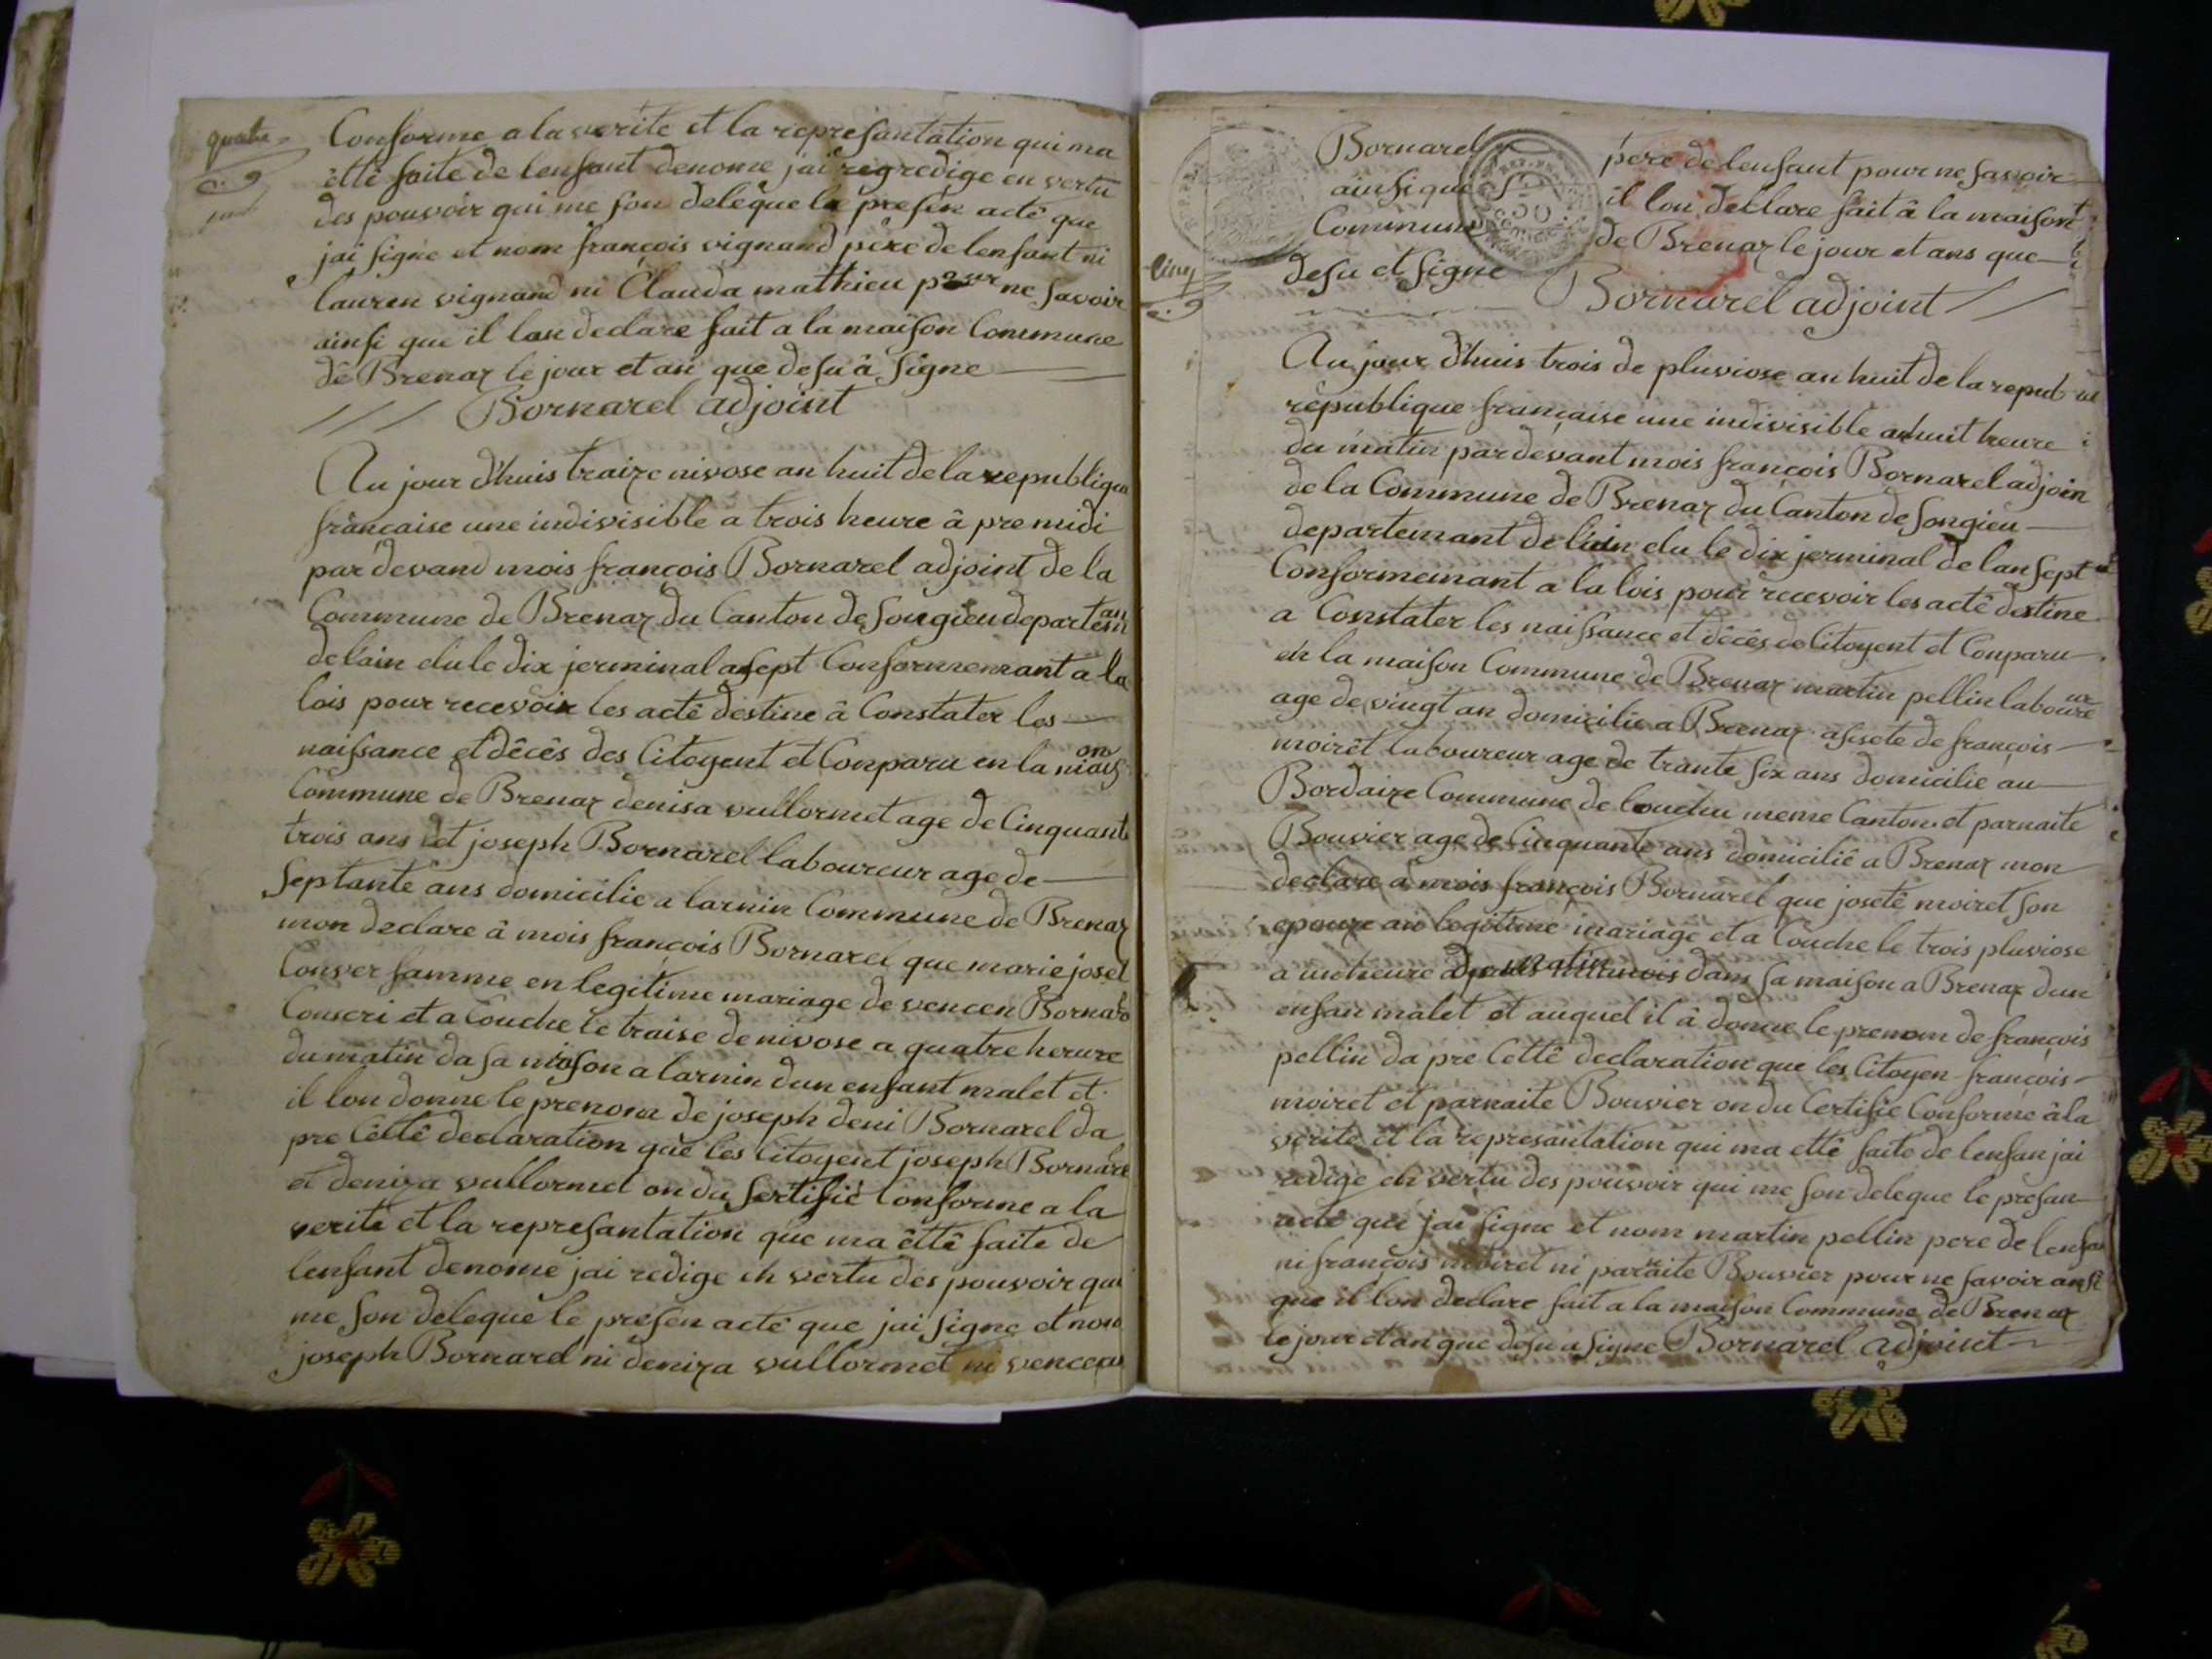 quatre
Conforme a la verite et la represantation qui ma
êttê faite de lenfant denome jai regredige en vertu
des pouvoir qui me son deleque le presen actê que
jai signe et nom françois vignand père de lenfant ni
lauren vignand ni Clauda mathieu pour ne savoir
ainsi que il lon declare fait a la maison Commune
dê Brenaz le jour et an que desu â Signe
Bornarel adjoint
Au jour d'huis traize nivose an huit de la republique
française une indivisible a trois heure â pre midi
par devand mois françois Bornarel adjoint de la
Commune de Brenaz du Canton de Songieu departeman
de lain elu le dix jerminal a sept Conformemant a la
lois pour recevoir les actê destine â Constater les
naissance et dêcês des Citoyent et Conparu en la maison
Commune de Brenaz denisa vullormet age de Cinquante
trois ans et joseph Bornarel laboureur age de
Septante ans domicilie a larnin Commune de Brenaz
mon declare â mois françois Bornarel que marie joset
Conver famme en legitime mariage de vencen Bornarel
Conscri et a Couche le traise de nivose a quatre herure
du matin da sa maison a larnin dun enfant malet et
il lon donne le prenom de joseph deni Bornarel da
pre Cettê declaration que les Citoyent joseph Bornare
et deniza vullormet on du Sertifié Conforme a la
verite et la represantation que ma êttê faite de
lenfant denome jai redige en vertu des pouvoir qui
me son deleque le presen actê que jai signe et nom
joseph Bornarel ni deniza vullormet ni vencean
Bornarel père de lenfant pour ne savoir
ainsi que il lon declare fait â la maison
Commune de Brenaz le jour et ans que
desu et signe
Cinq
Bornarel adjoint
Au jour d'huis trois de pluviose an huit de la repub
republique française une indivisible a huit heure
du matin par devant mois françois Bornarel adjoin
de la Commune de Brenaz du Canton de Songieu
departemant de lain elu le dix jerminal de lan sept
Conformemant a la lois pour recevoir les actê destine
a Constater les naissance et dêcês de Citoyent et Conparu
en la maison Commune de Brenaz martin pellin laboureur
age de vingt an domicilie a Brenaz asisete de françois
moirêt laboureur age de trante six ans domicilie au
Bordaize Commune de meme Canton et parnaite
Bouvier age de Cinquante ans domiciliê a Brenaz mon
declare a mois françois Bornarel que josetê moiret son
epouze an legitime mariage et a Couche le trois pluviose
a unheure du matin dans sa maison a Brenaz dun
enfan malet et auquel il â donne le prenom de françois
pellin da pre Cettê declaration que les Citoyen françois
moiret et parnaite Bouvier on du Certifie Conforme â la
verite et la represantation qui ma ettê faite de lenfan jai
redige en vertu des pouvoir qui me son deleque le presan
actê que jai signe et nom martin pellin pere de lenfan
ni françois moiret ni parnaite Bouvier pour ne savoir ansi
que il lon declare fait a la maison Commune de Brenaz
le jour et an que desu a signe Bornarel adjoint